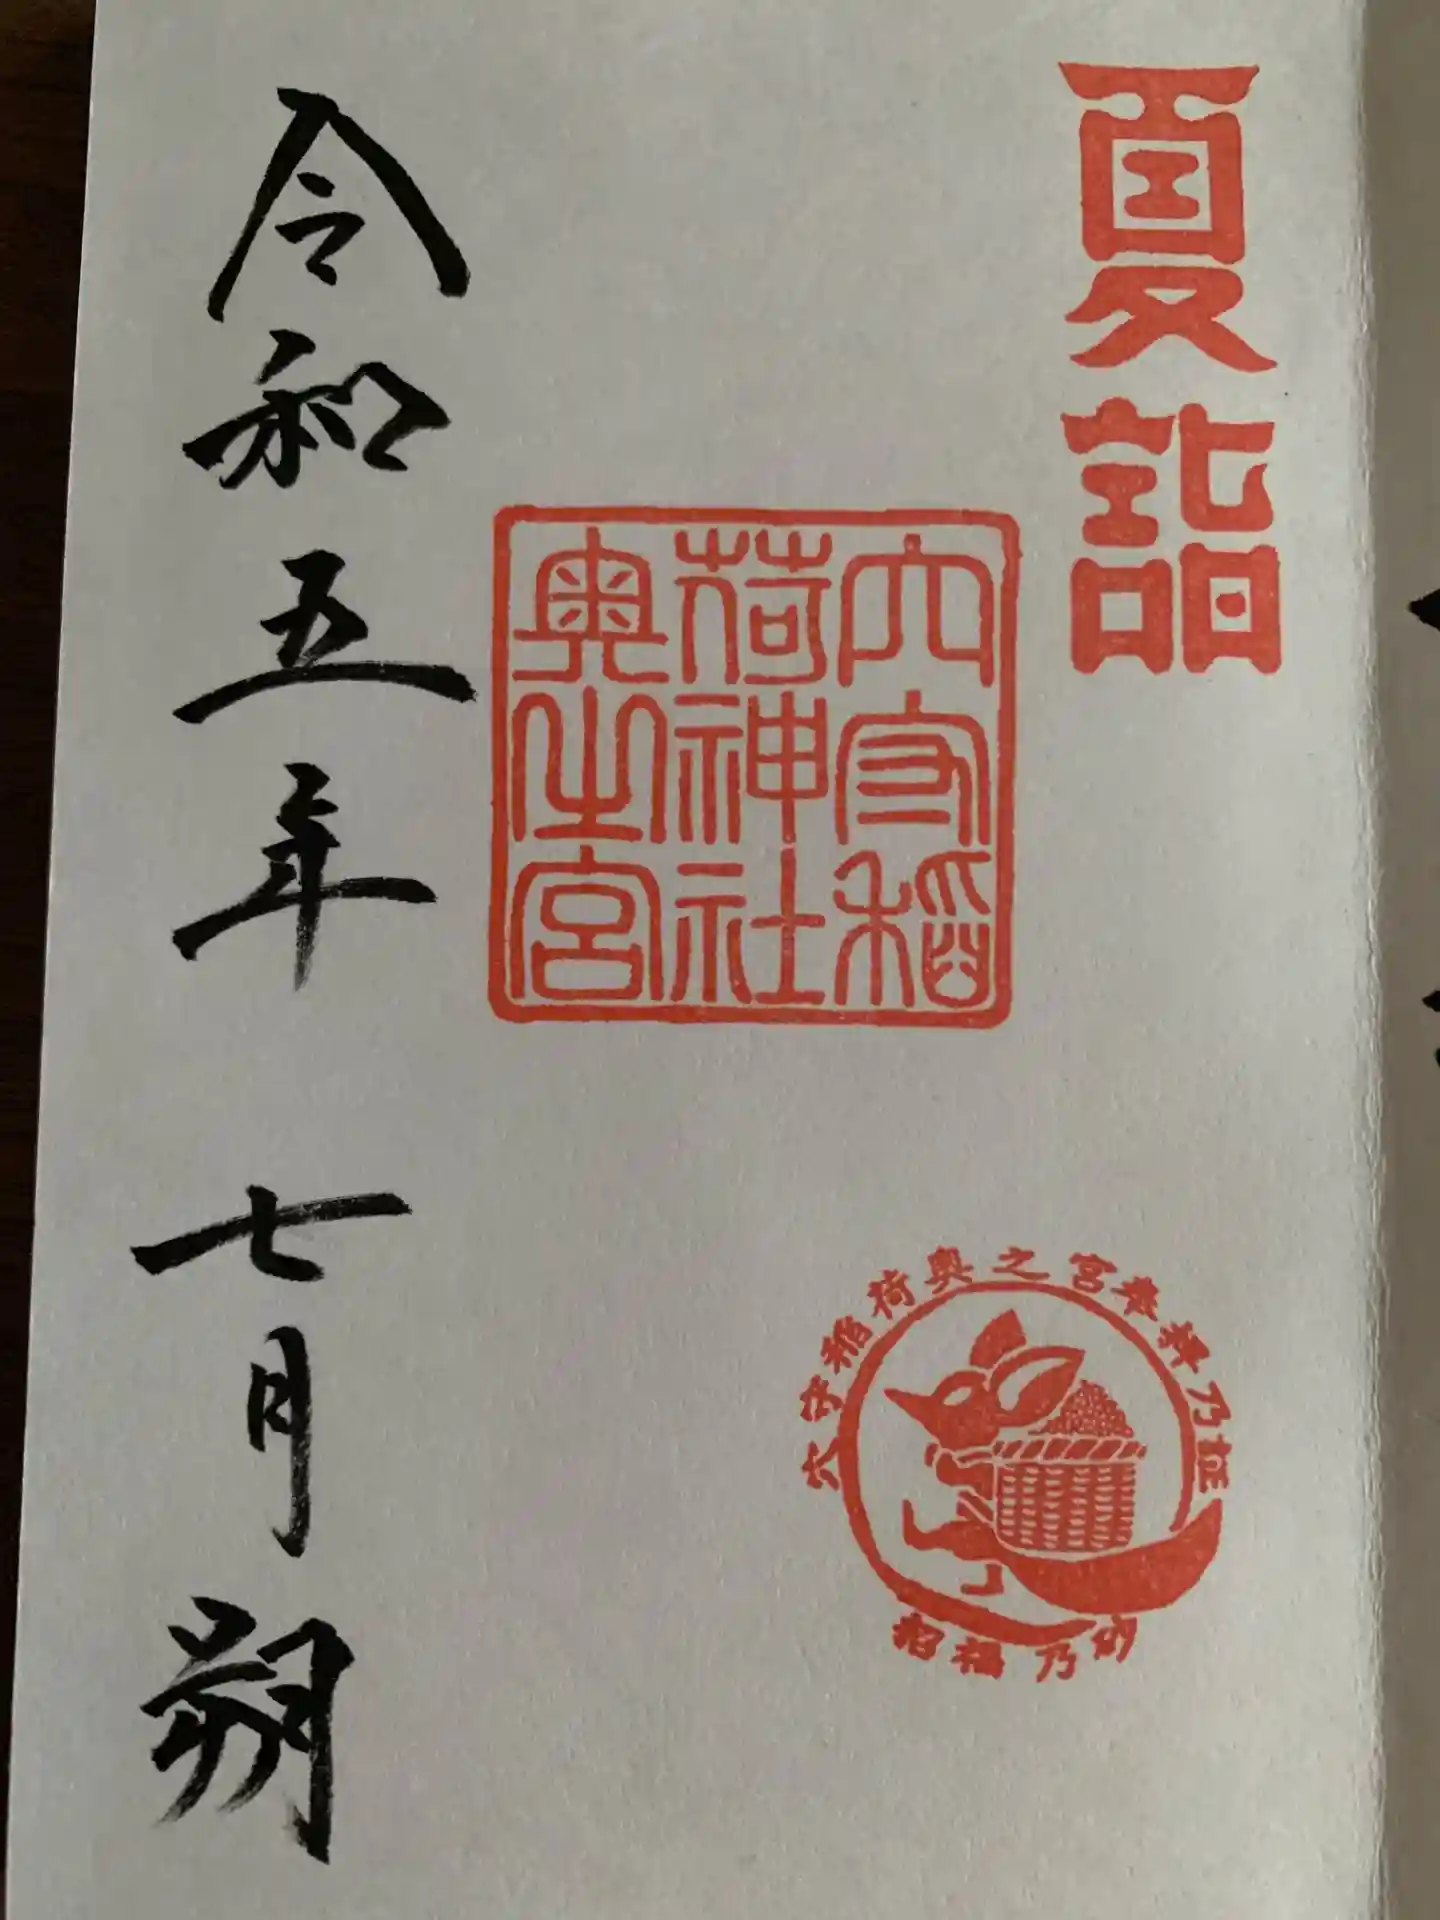 夏詣
穴守稲
荷神社
奥之宮
穴守稲荷奥之宮奉拝乃証
招福乃砂
令和五年 七月朔